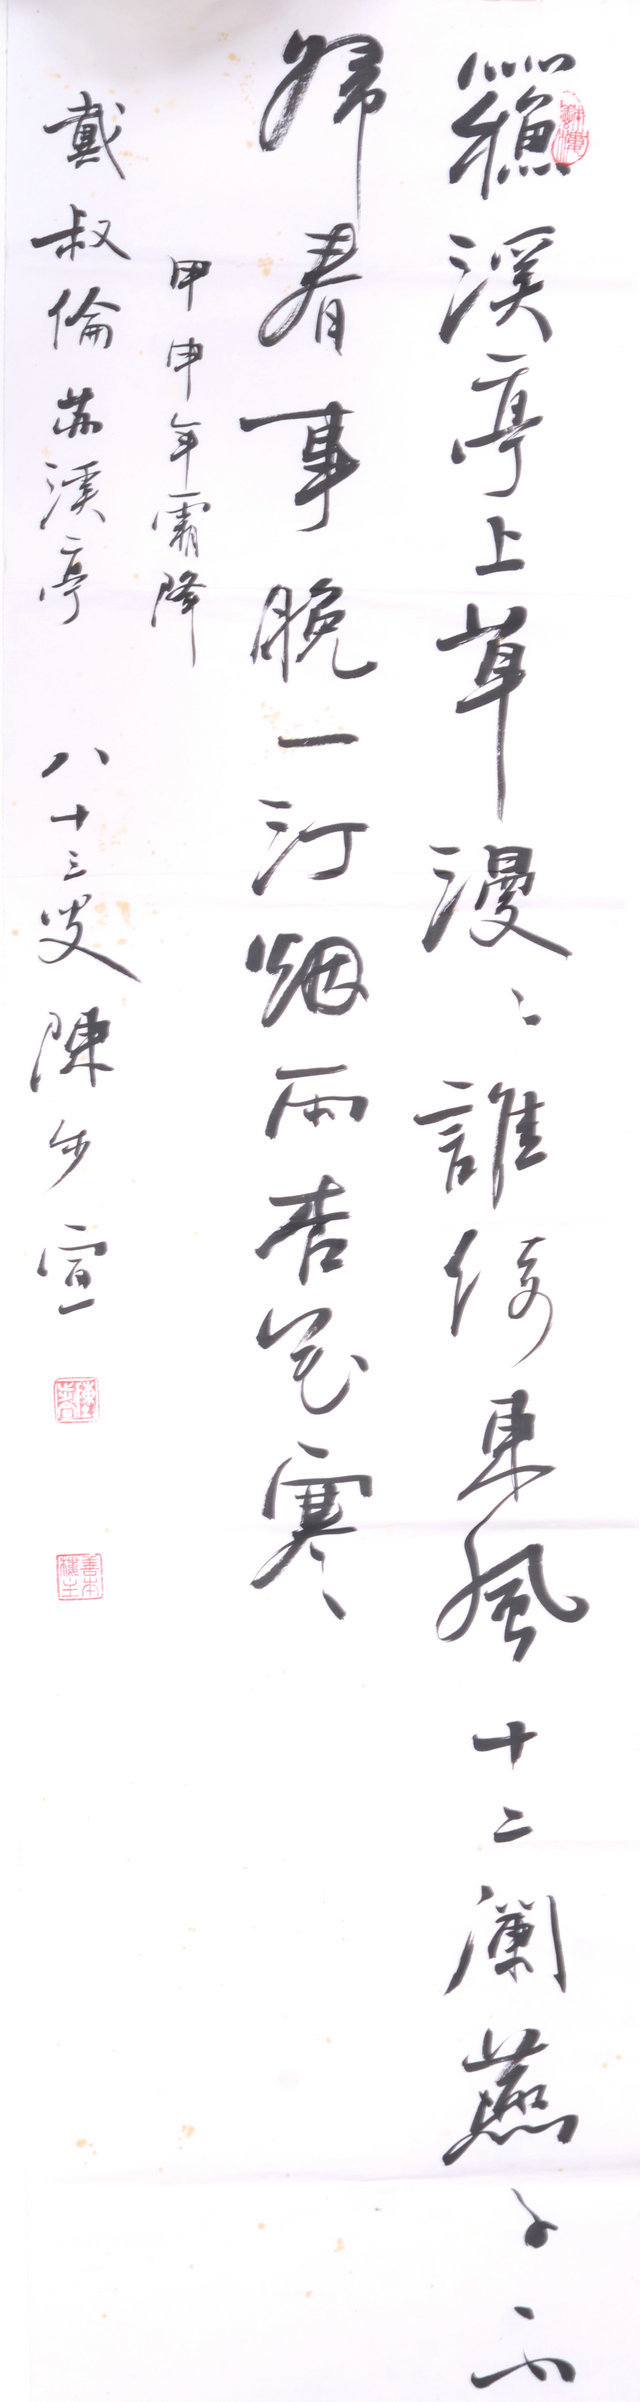 蘇溪亭上草漫〻誰倚東風十二闌燕子不
歸春事晚一汀烟雨杏花寒
甲申年霜降
戴叔倫苏溪亭 八十三叟陳步宣
善本樓主